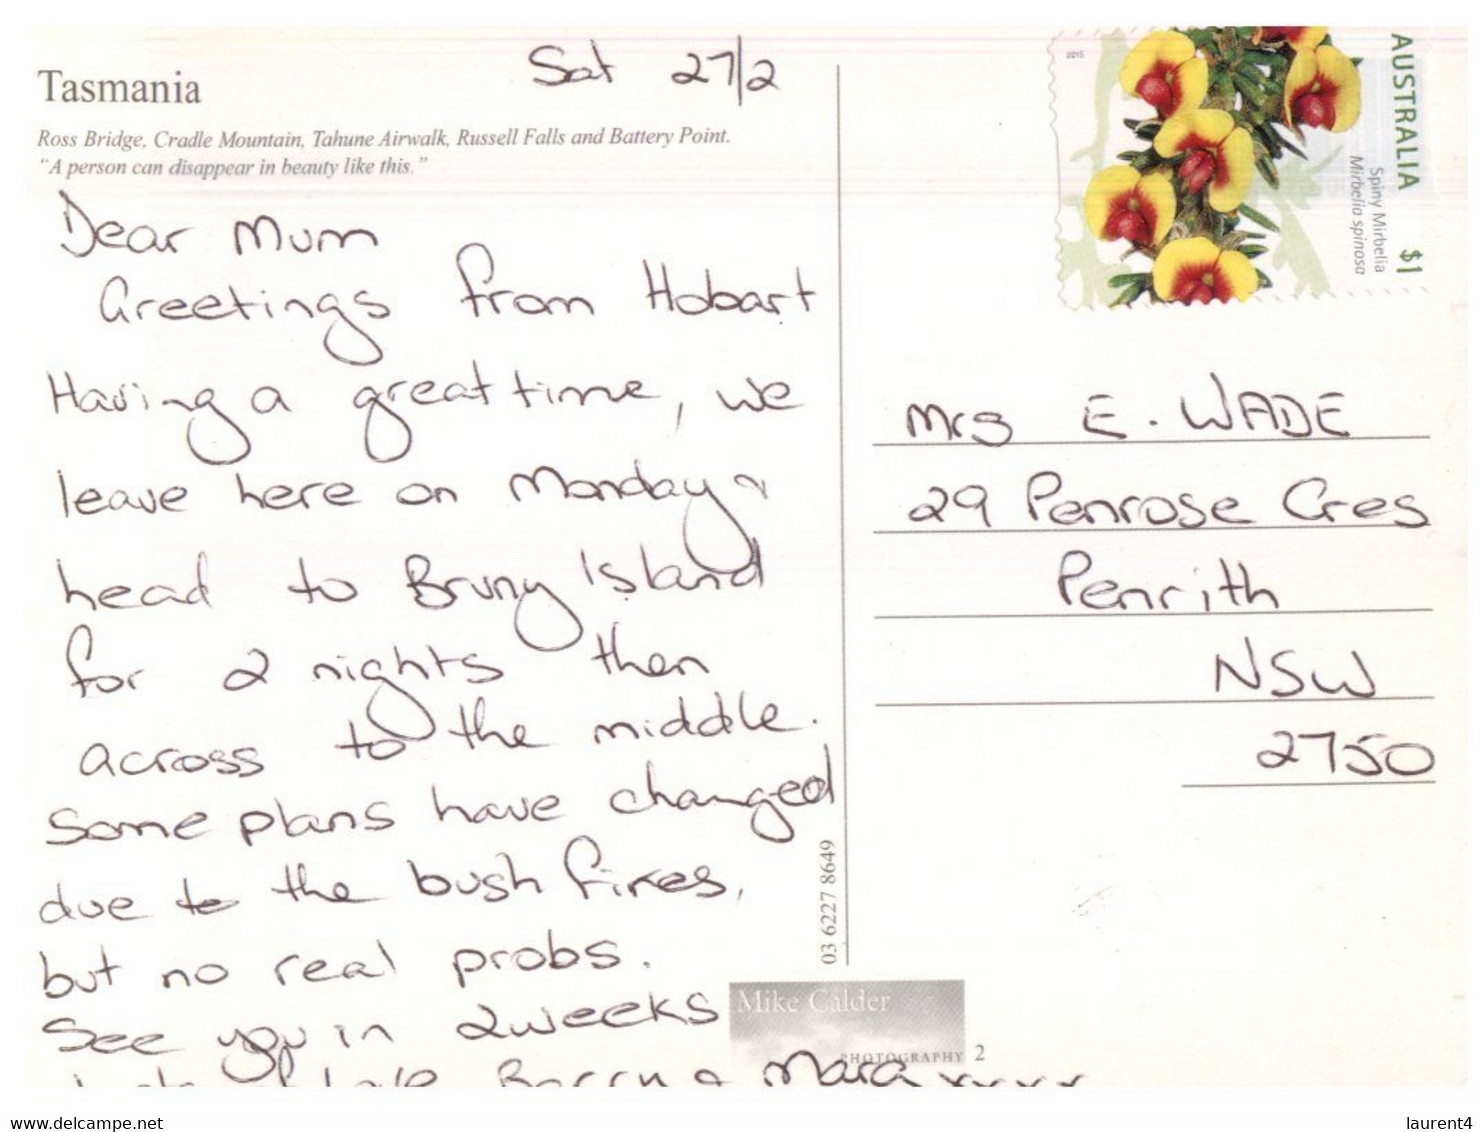 Sat 27/2
Tasmania
Ross Bridge, Cradle Mountain, Tahune Airwalk, Russell Falls and Battery Point.
"A person can disappear in beauty like this."
Dear Mum
Greetings from Hobart
Having a great time, we
leave here on Monday &
head to Bruny Island
for 2 nights then
across to the middle.
Some plans have changed
due to the bush fires,
but no real probs.
See you in 2weeks
Love Barry & Mara xxxx
2015
AUSTRALIA
Spiny Mirbelia
Mirbelia spinosa
$1
Mrs E. WADE
29 Penrose Cres
Penrith
NSW
2750
03 6227 8649
Mike Calder
PHOTOGRAPHY 2
www.delcampe.net
laurent4